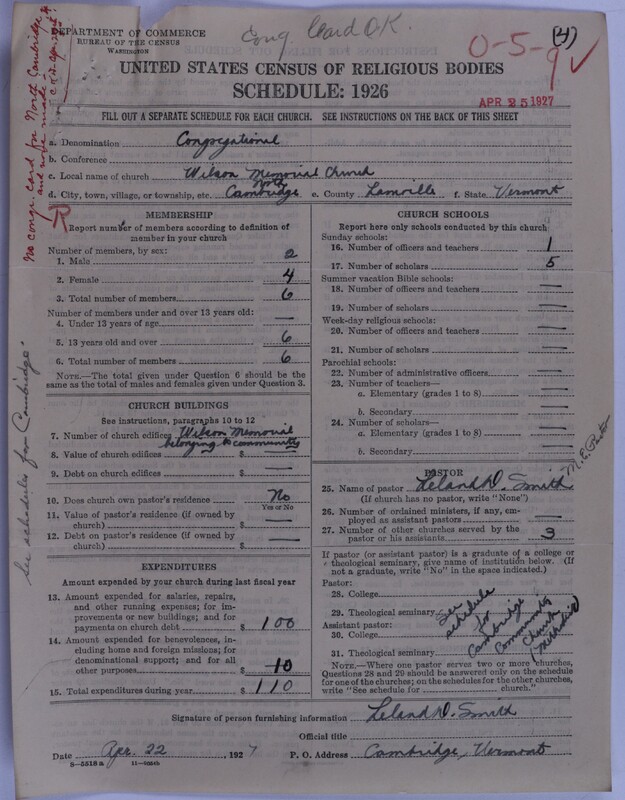 Cong Card O.K.
(4)
DEPARTMENT OF COMMERCE
BUREAU OF THE CENSUS
WASHINGTON
0-5-9 ✓
UNITED STATES CENSUS OF RELIGIOUS BODIES
SCHEDULE: 1926
APR 25 1927
FILL OUT A SEPARATE SCHEDULE FOR EACH CHURCH. SEE INSTRUCTIONS ON THE BACK OF THIS SHEET
No congr. card for North Cambridge, Vt.
and none made
a. Denomination Congregational
b. Conference
c. Local name of church Wilson Memorial Church
d. City, town, village, or township, etc. No. Cambridge e. County Lamoille f. State Vermont
R
MEMBERSHIP
Report number of members according to definition of
member in your church
Number of members, by sex:
1. Male 2
2. Female 4
3. Total number of members 6
Number of members under and over 13 years old:
4. Under 13 years of age —
5. 13 years old and over 6
6. Total number of members 6
NOTE.—The total given under Question 6 should be the
same as the total of males and females given under Question 3.
CHURCH BUILDINGS
See instructions, paragraphs 10 to 12
7. Number of church edifices Wilson Memorial
belonging to community
8. Value of church edifices $ —
9. Debt on church edifices $ —
10. Does church own pastor's residence No
Yes or No
11. Value of pastor's residence (if owned by
church) $ —
12. Debt on pastor's residence (if owned by
church) $ —
EXPENDITURES
Amount expended by your church during last fiscal year
13. Amount expended for salaries, repairs,
and other running expenses; for im-
provements or new buildings; and for
payments on church debt $ 100
14. Amount expended for benevolences, in-
cluding home and foreign missions; for
denominational support; and for all
other purposes $ 10
15. Total expenditures during year $ 110
See schedules from Cambridge.
CHURCH SCHOOLS
Report here only schools conducted by this church
Sunday schools:
16. Number of officers and teachers 1
17. Number of scholars 5
Summer vacation Bible schools:
18. Number of officers and teachers —
19. Number of scholars —
Week-day religious schools:
20. Number of officers and teachers —
21. Number of scholars —
Parochial schools:
22. Number of administrative officers —
23. Number of teachers—
a. Elementary (grades 1 to 8) —
b. Secondary —
24. Number of scholars—
a. Elementary (grades 1 to 8) —
b. Secondary —
PASTOR
25. Name of pastor Leland D. Smith M.E. Pastor
(If church has no pastor, write "None")
26. Number of ordained ministers, if any, em-
ployed as assistant pastors —
27. Number of other churches served by the
pastor or his assistants 3
If pastor (or assistant pastor) is a graduate of a college or
theological seminary, give name of institution below. (If
not a graduate, write "No" in the space indicated.)
Pastor:
28. College
29. Theological seminary
Assistant pastor:
30. College
31. Theological seminary
See
schedule
for
Cambridge
Community
Church
(Methodist)
NOTE.—Where one pastor serves two or more churches,
Questions 28 and 29 should be answered only on the schedule
for one of the churches; on the schedules for the other churches,
write "See schedule for church."
Signature of person furnishing information Leland D. Smith
Official title
Date Apr. 22 1927 P. O. Address Cambridge, Vermont